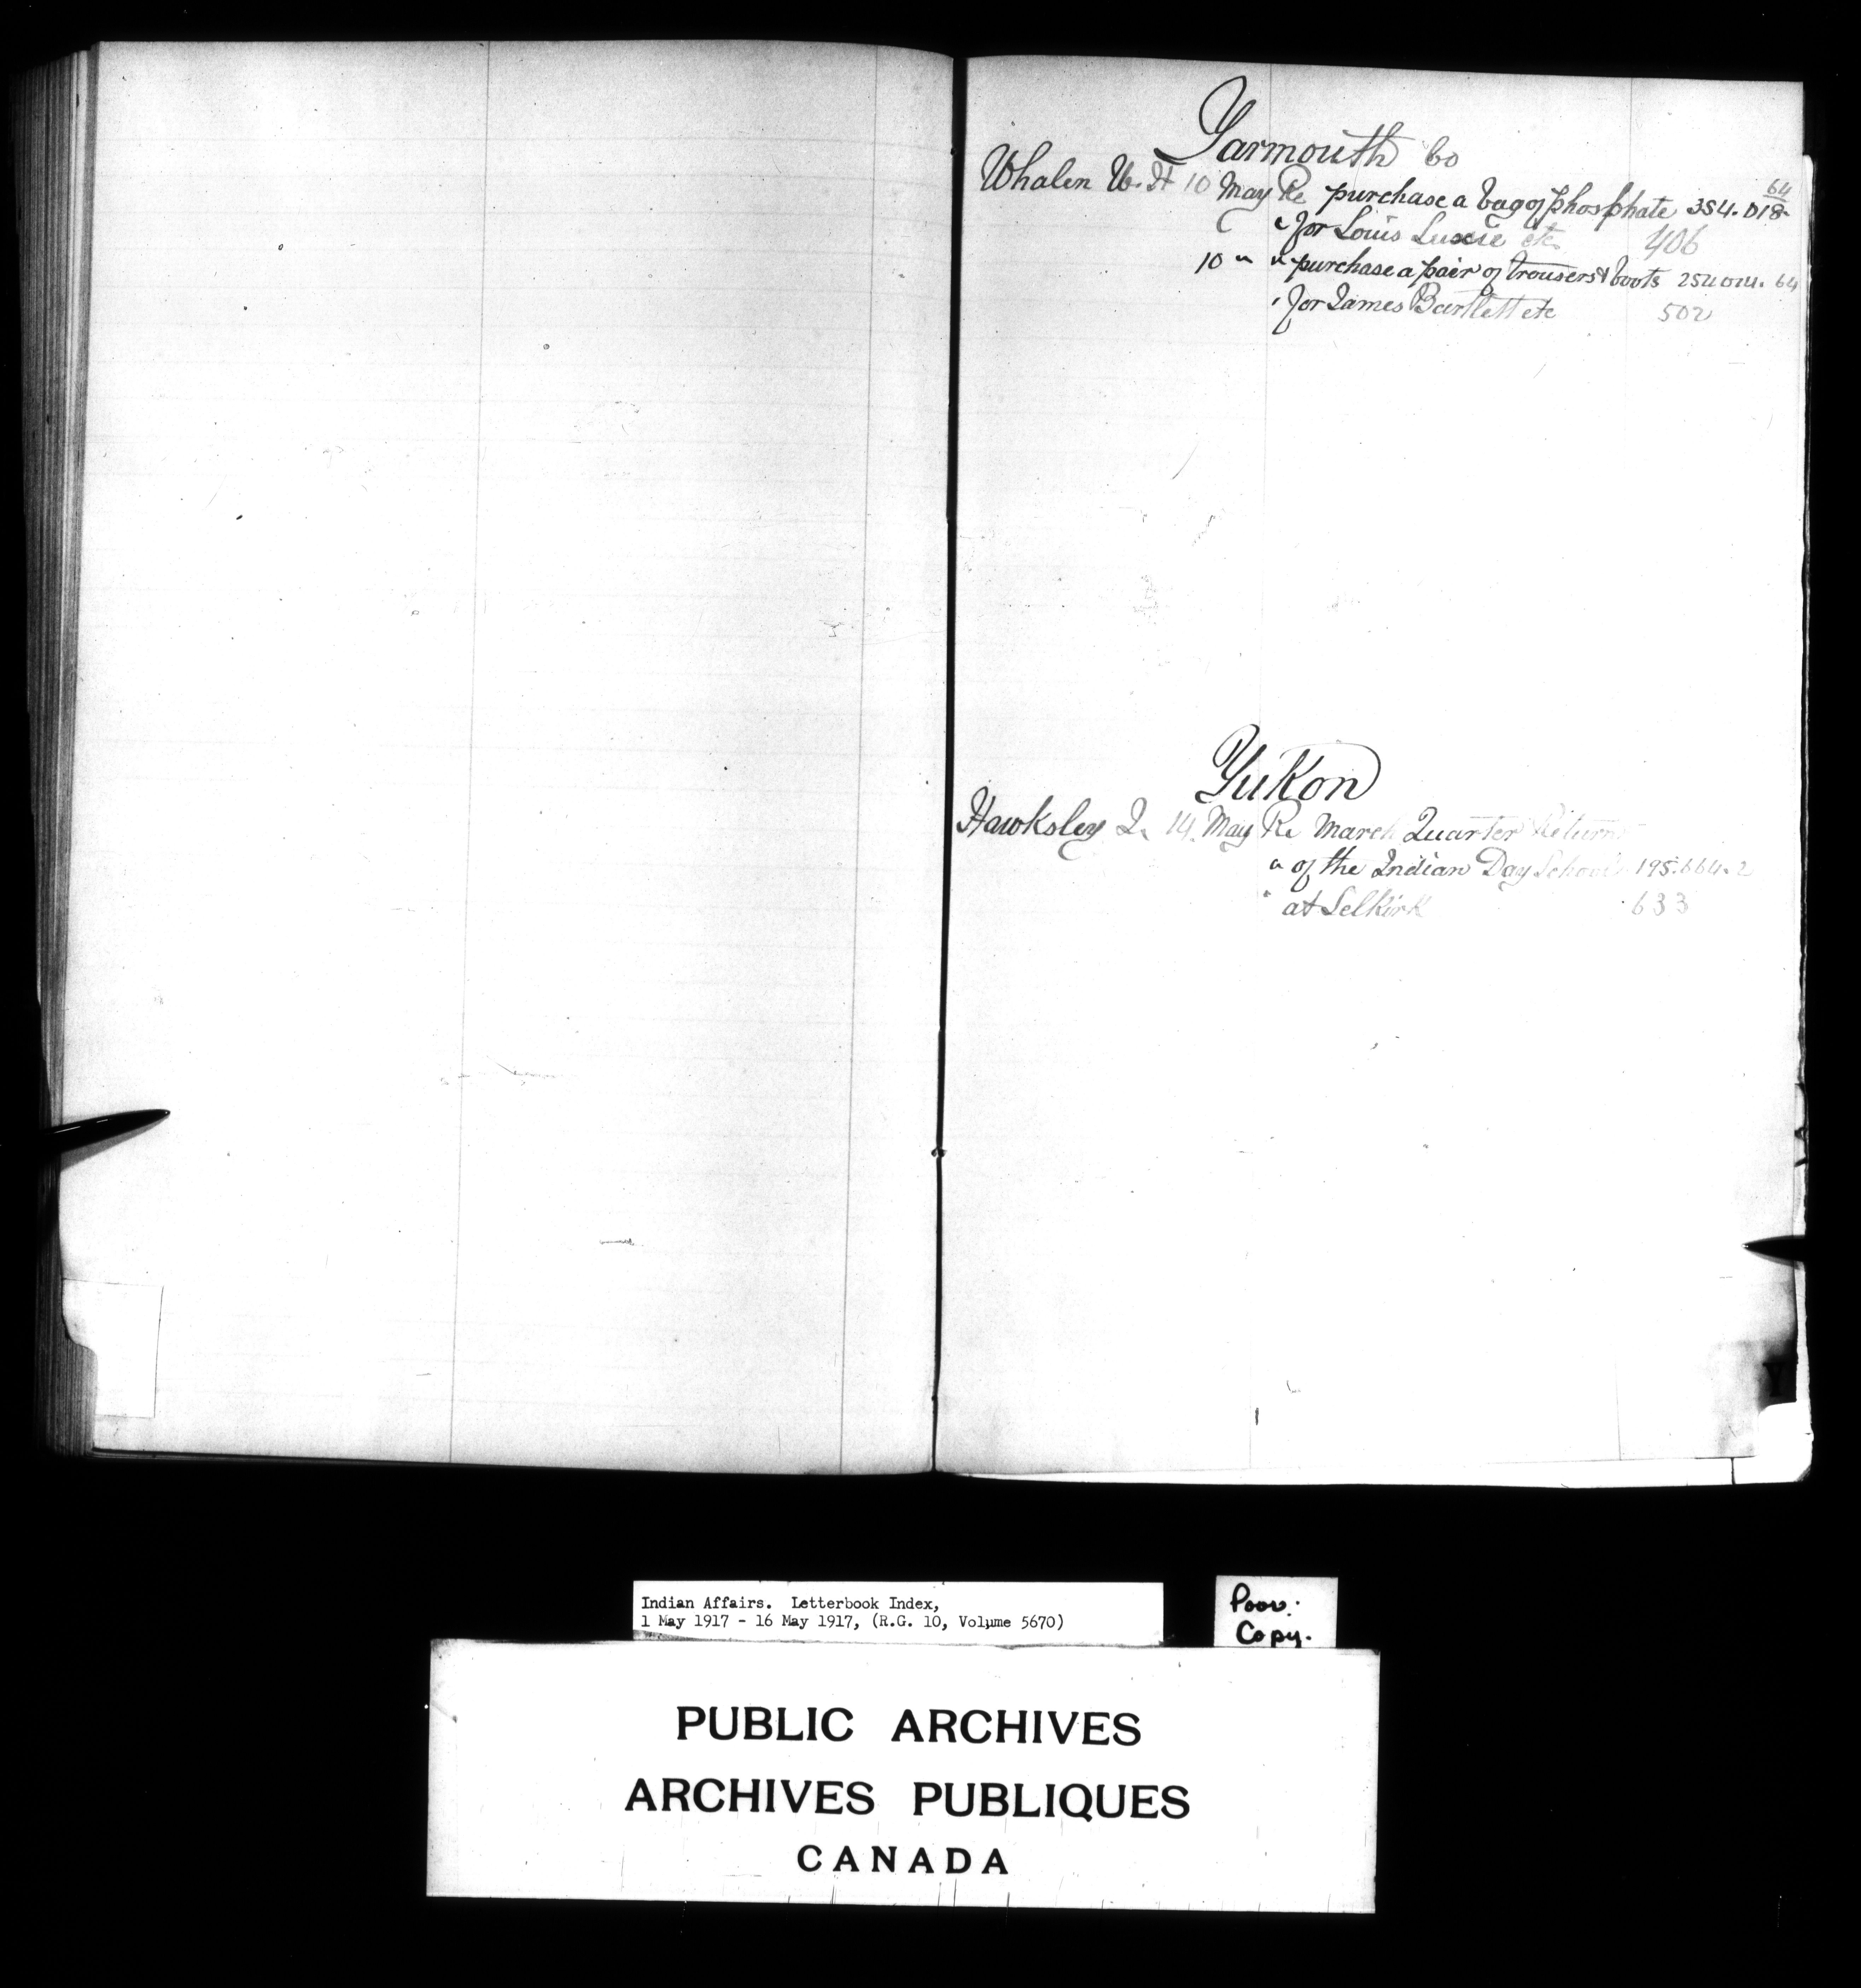 Yarmouth Co
Whalen W. H 10 May Re purchase a bag of phosphate 354.018 64
" for Louis Luxie etc 406
10 " " purchase a pair of trousers & boots 254014. 64
" for James Bartlett etc 502
Yukon
Hawksley J. 14 May Re March Quarter Return
" of the Indian Day Schools 195.664-2
" at Selkirk 633
Y
Indian Affairs. Letterbook Index,
1 May 1917 - 16 May 1917, (R.G. 10, Volume 5670)
Poor
Copy.
PUBLIC ARCHIVES
ARCHIVES PUBLIQUES
CANADA